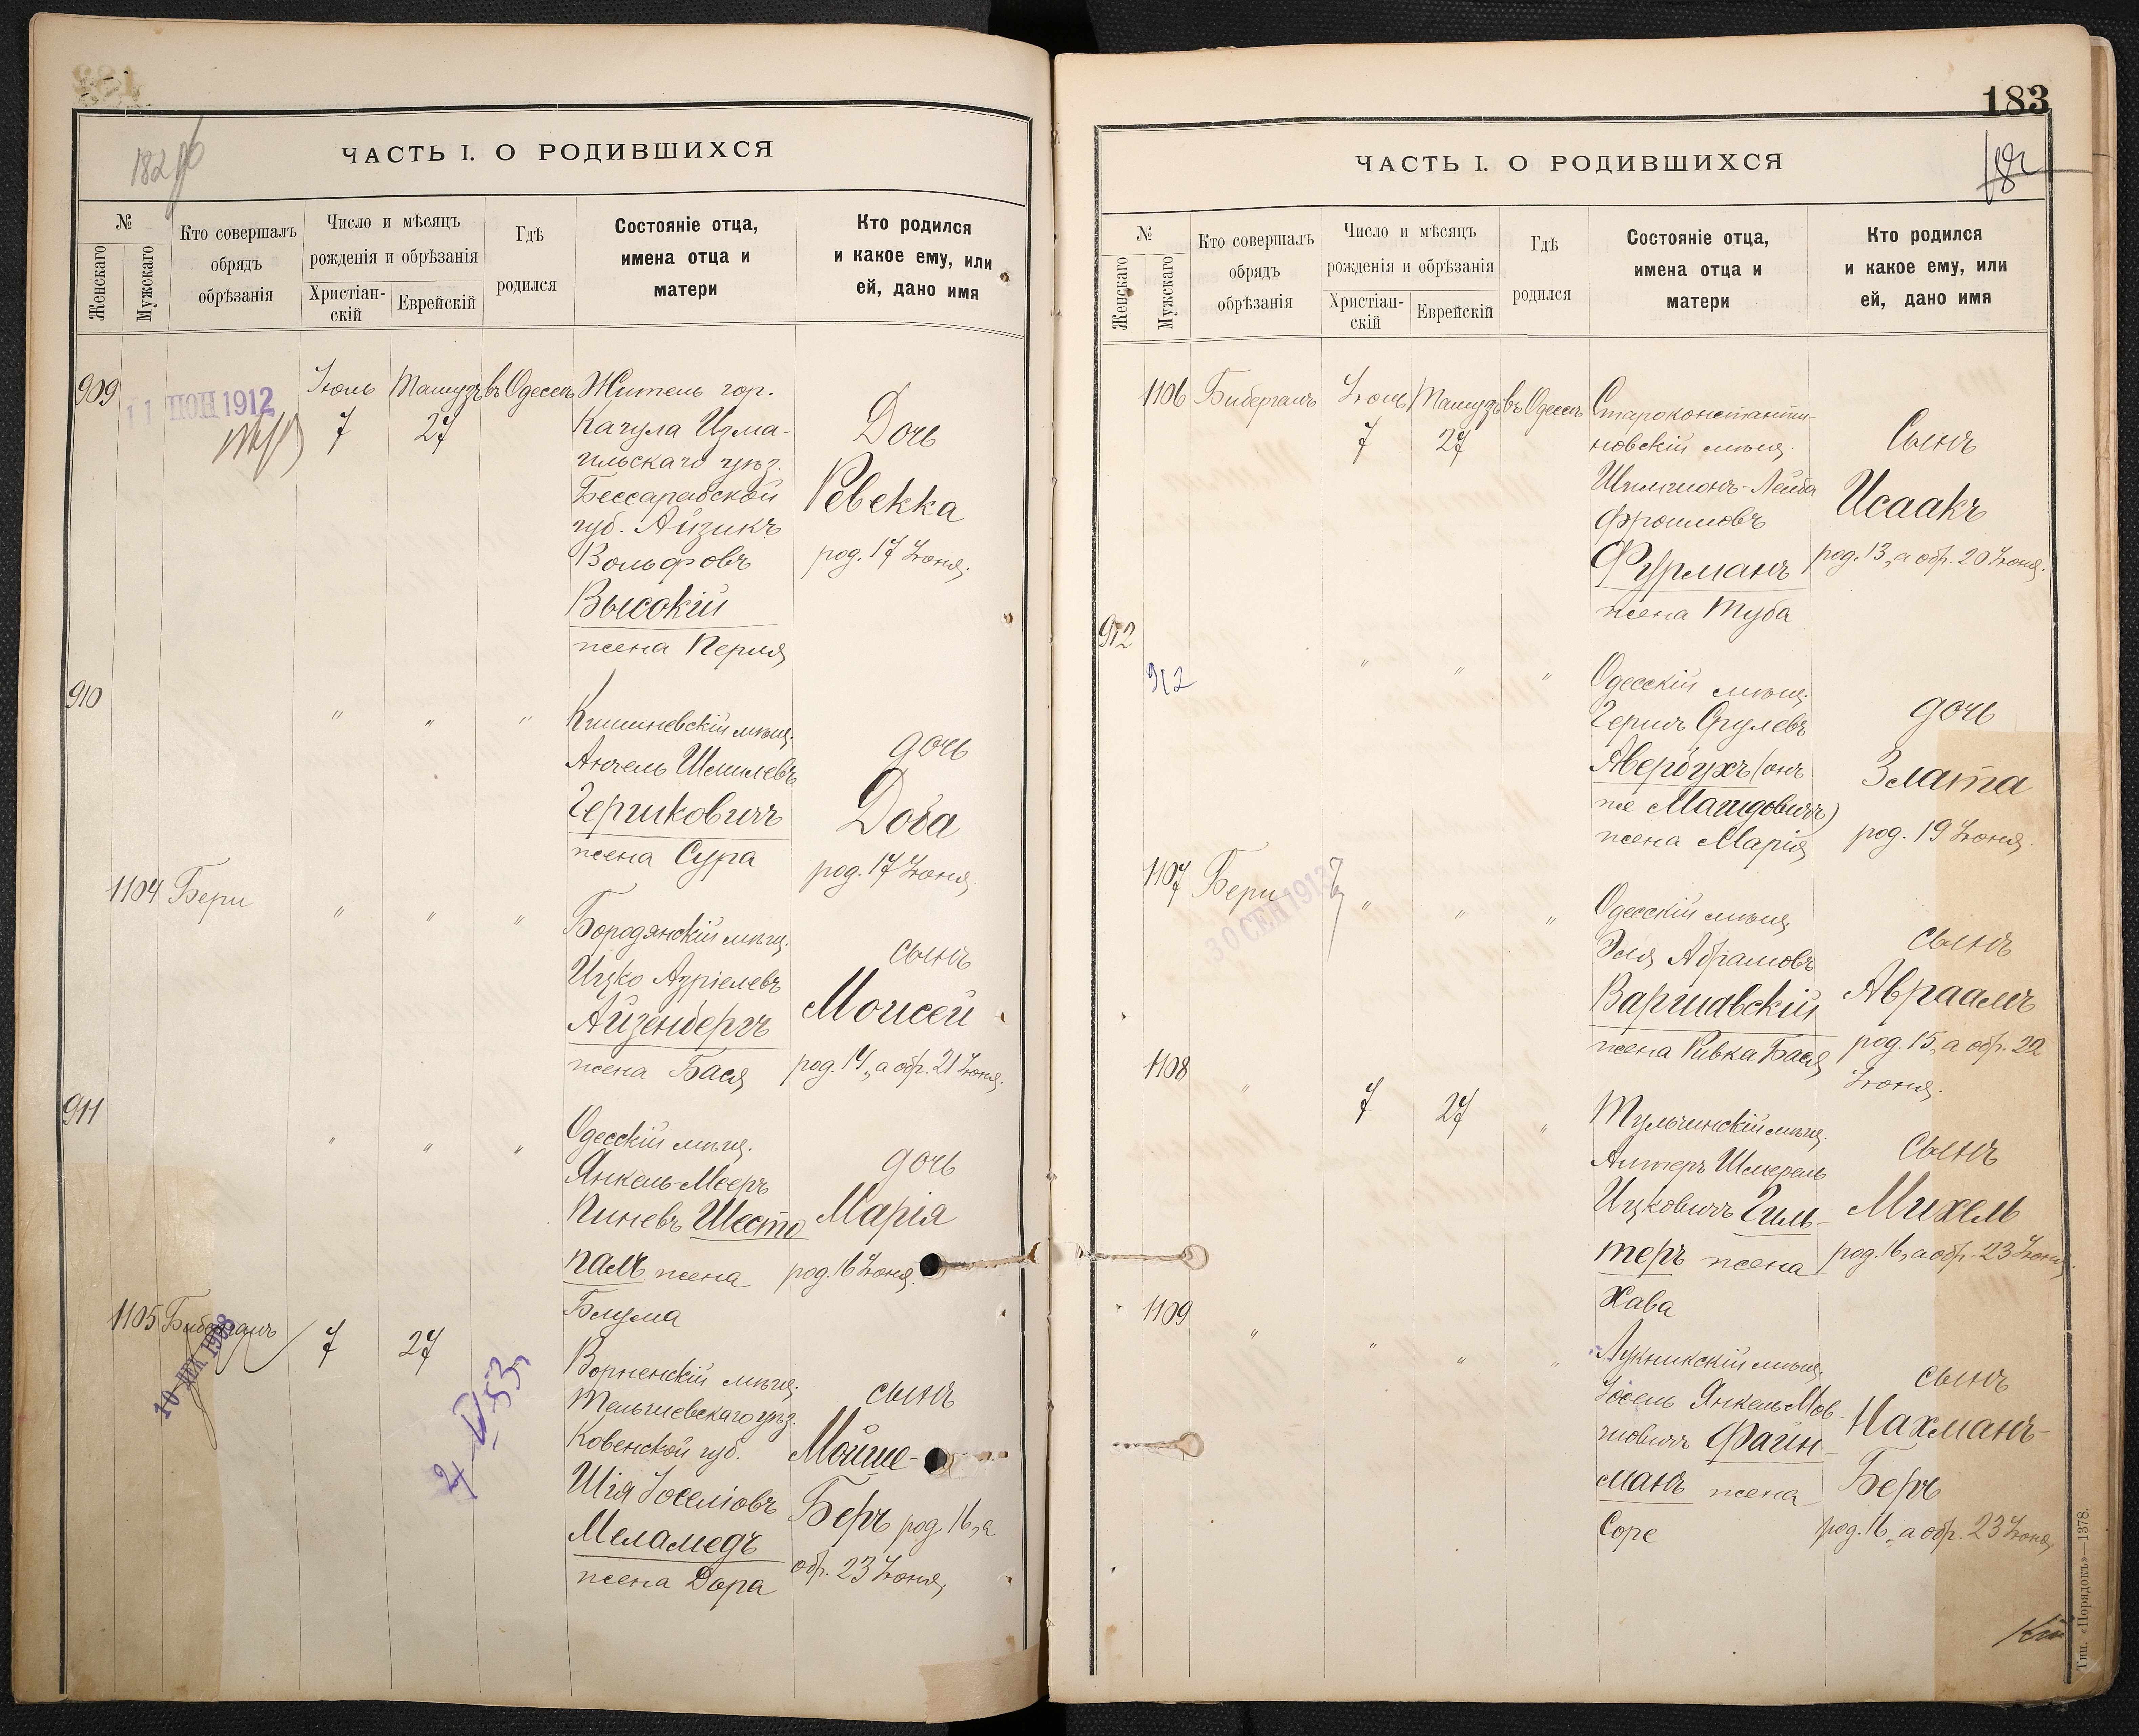 182 об
ЧАСТЬ I. О РОДИВШИХСЯ
№
Женскаго
Мужскаго
Кто совершалъ
обрядъ
обрѣзанія
Число и мѣсяцъ
рожденія и обрѣзанія
Христіан-
скій
Еврейскій
Гдѣ
родился
Состояніе отца,
имена отца и
матери
Кто родился
и какое ему, или
ей, дано имя
909
11 ІЮН 1912
Іюль Тамузъ въ Одессѣ
7 27
Житель гор.
Кагула Изма-
ильскаго уѣз.
Бессарабской
губ. Айзикъ
Вольфовъ
Высокій
жена Перля
Дочь
Ревекка
род. 17 Іюня.
910
" " "
Кишиневскій мѣщ.
Анчель Шмилевъ
Гершковичъ
жена Сура
дочь
Доба
род. 17 Іюня.
1104 Бери
" " "
Бородянскій мѣщ.
Ицко Азріелевъ
Айзенбергъ
жена Бася
сынъ
Моисей
род. 14, а обр. 21 Іюня.
911
" " "
Одесскій мѣщ.
Янкель-Мееръ
Пиневъ Шесто
палъ жена
Блума
дочь
Марія
род. 16 Іюня.
1105 Биберганъ
10 ДЕК 1908
7 27
Ворненскій мѣщ.
Тельшевскаго уѣз.
Ковенской губ.
Шія Іоселіовъ
Меламедъ
жена Дора
сынъ
Мойше-
Беръ род. 16, а
обр. 23 Іюня.
183
182
ЧАСТЬ I. О РОДИВШИХСЯ
№
Женскаго
Мужскаго
Кто совершалъ
обрядъ
обрѣзанія
Число и мѣсяцъ
рожденія и обрѣзанія
Христіан-
скій
Еврейскій
Гдѣ
родился
Состояніе отца,
имена отца и
матери
Кто родился
и какое ему, или
ей, дано имя
1106 Биберганъ Іюль Тамузъ въ Одессѣ
7 27
Староконстанти-
новскій мѣщ.
Шимшонъ-Лейба
Фроимовъ
Фурманъ
жена Туба
Сынъ
Исаакъ
род. 13, а обр. 20 Іюня.
912
912
" " "
Одесскій мѣщ.
Гершъ Срулевъ
Авербухъ (онъ
же Магидовичъ)
жена Марія
дочь
Злата
род. 19 Іюня.
1107 Бери
30 СЕН 1913
" " "
Одесскій мѣщ.
Эля Абрамовъ
Варшавскій
жена Ривка Бася
сынъ
Авраамъ
род. 15, а обр. 22
Іюня.
1108
" 7 27 "
Тульчинскій мѣщ.
Алтеръ Шмерель
Ицковичъ Гиль-
теръ жена
Хава
Сынъ
Михель
род. 16, а обр. 23 Іюня.
1109
" " " "
Лукникскій мѣщ.
Іосель Янкель Мов-
шовичъ Файн-
манъ жена
Соре
сынъ
Нахманъ-
Беръ
род. 16, а обр. 23 Іюня.
Тип. «Порядокъ»—1378.